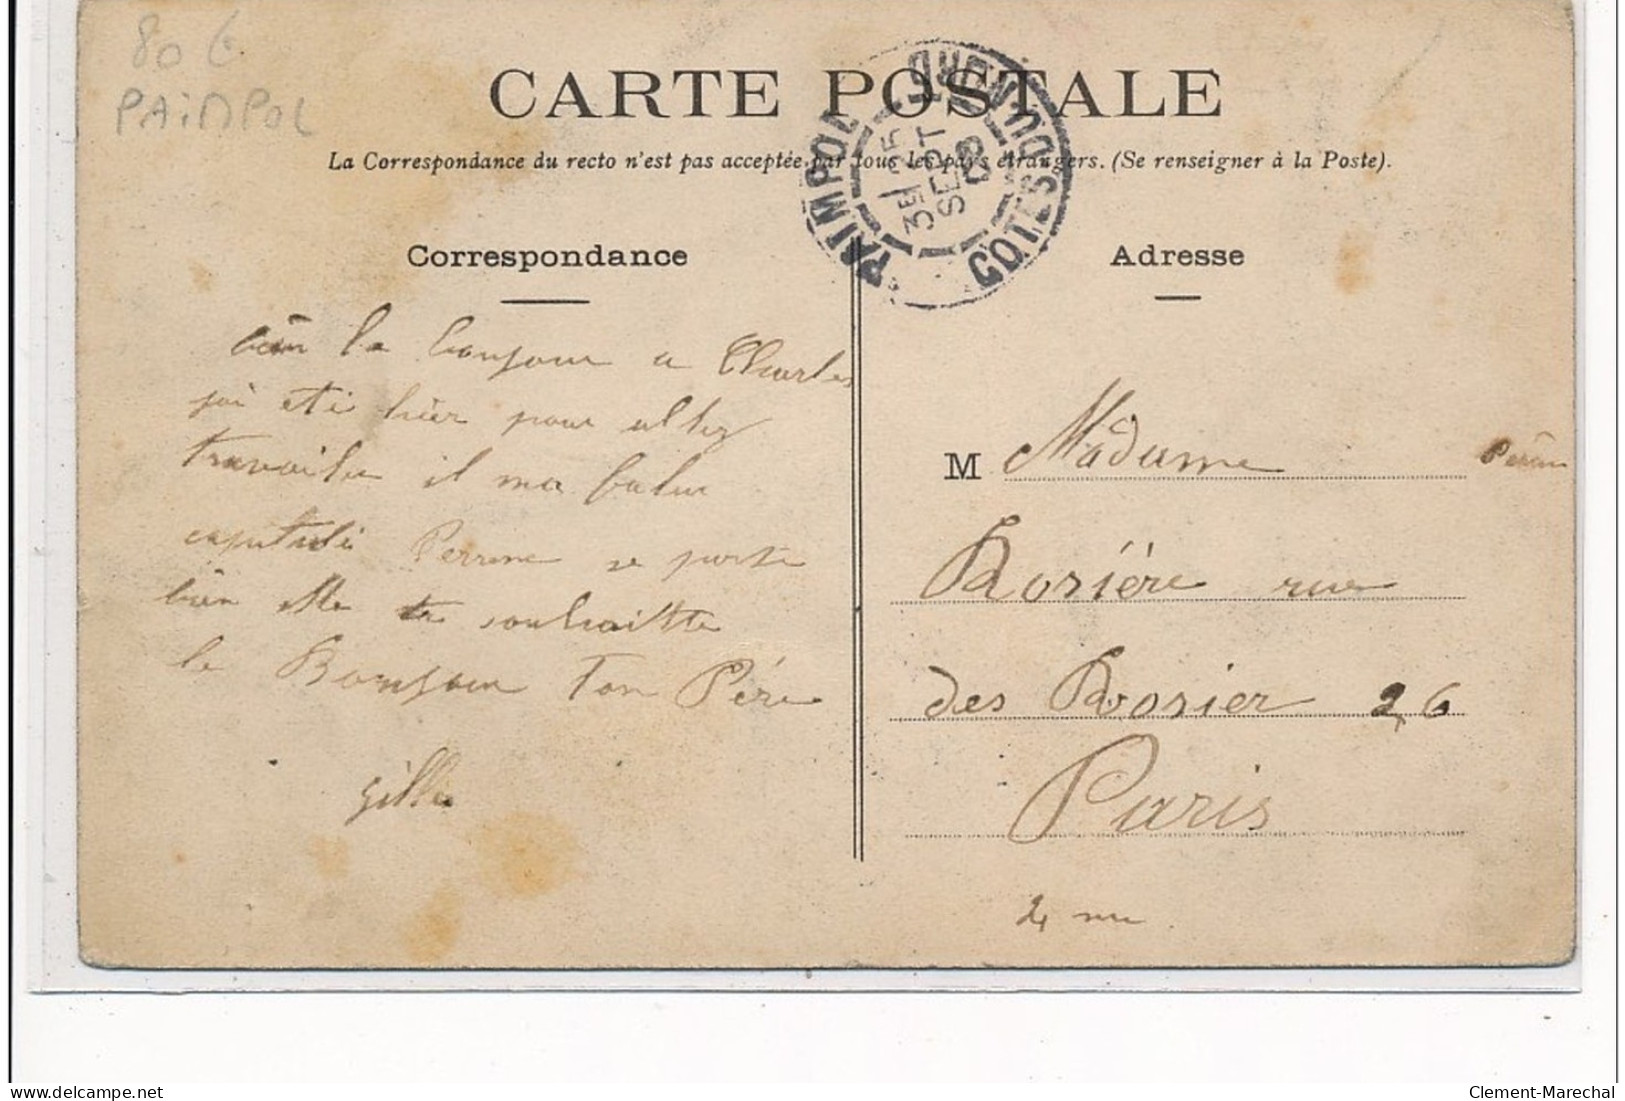 80 €
PAiMPOL
CARTE POSTALE
La Correspondance du recto n'est pas acceptée par tous les pays étrangers. (Se renseigner à la Poste).
PAIMPOL
COTES-DU-NORD
3E
25
SEPT
08
Correspondance
Adresse
le bonjour a Charles
jai eti hier pour aller
travailer il ma falu
Perrine se porte
bien elle te souhaitte
le Bonjour Ton Père
gille
M Madame
Rosière rue
des Rosier 26
Paris
Clement-Marechal